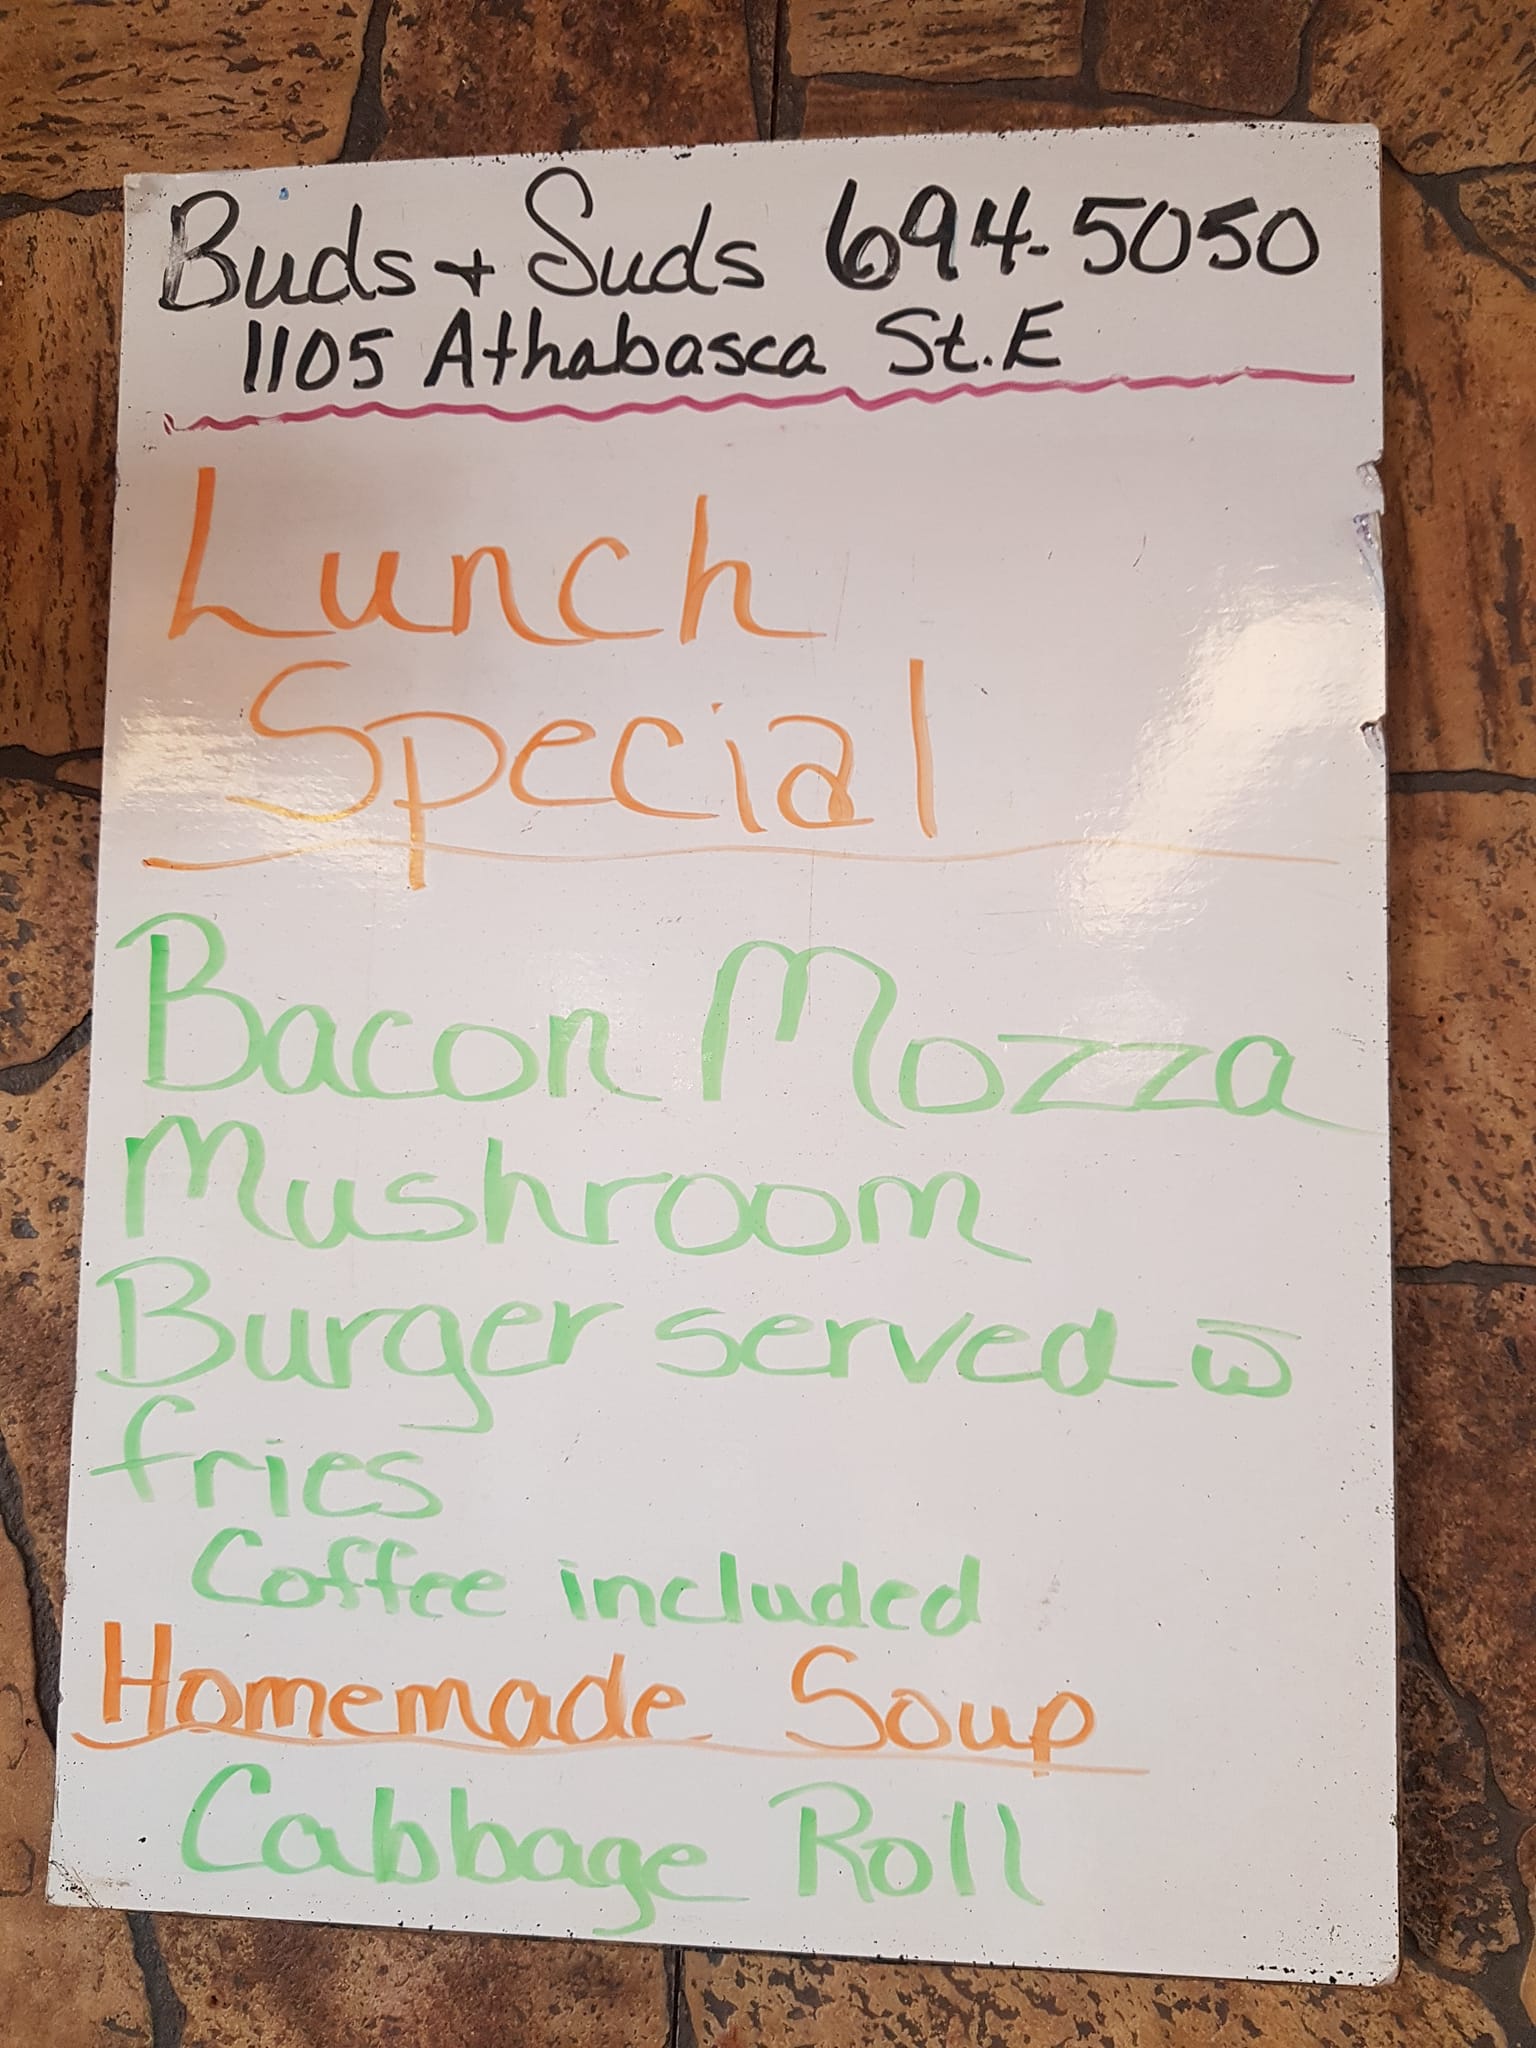 Buds + Suds 694-5050
1105 Athabasca St. E
Lunch
Special
Bacon Mozza
Mushroom
Burger served w̅
fries
Coffee included
Homemade Soup
Cabbage Roll